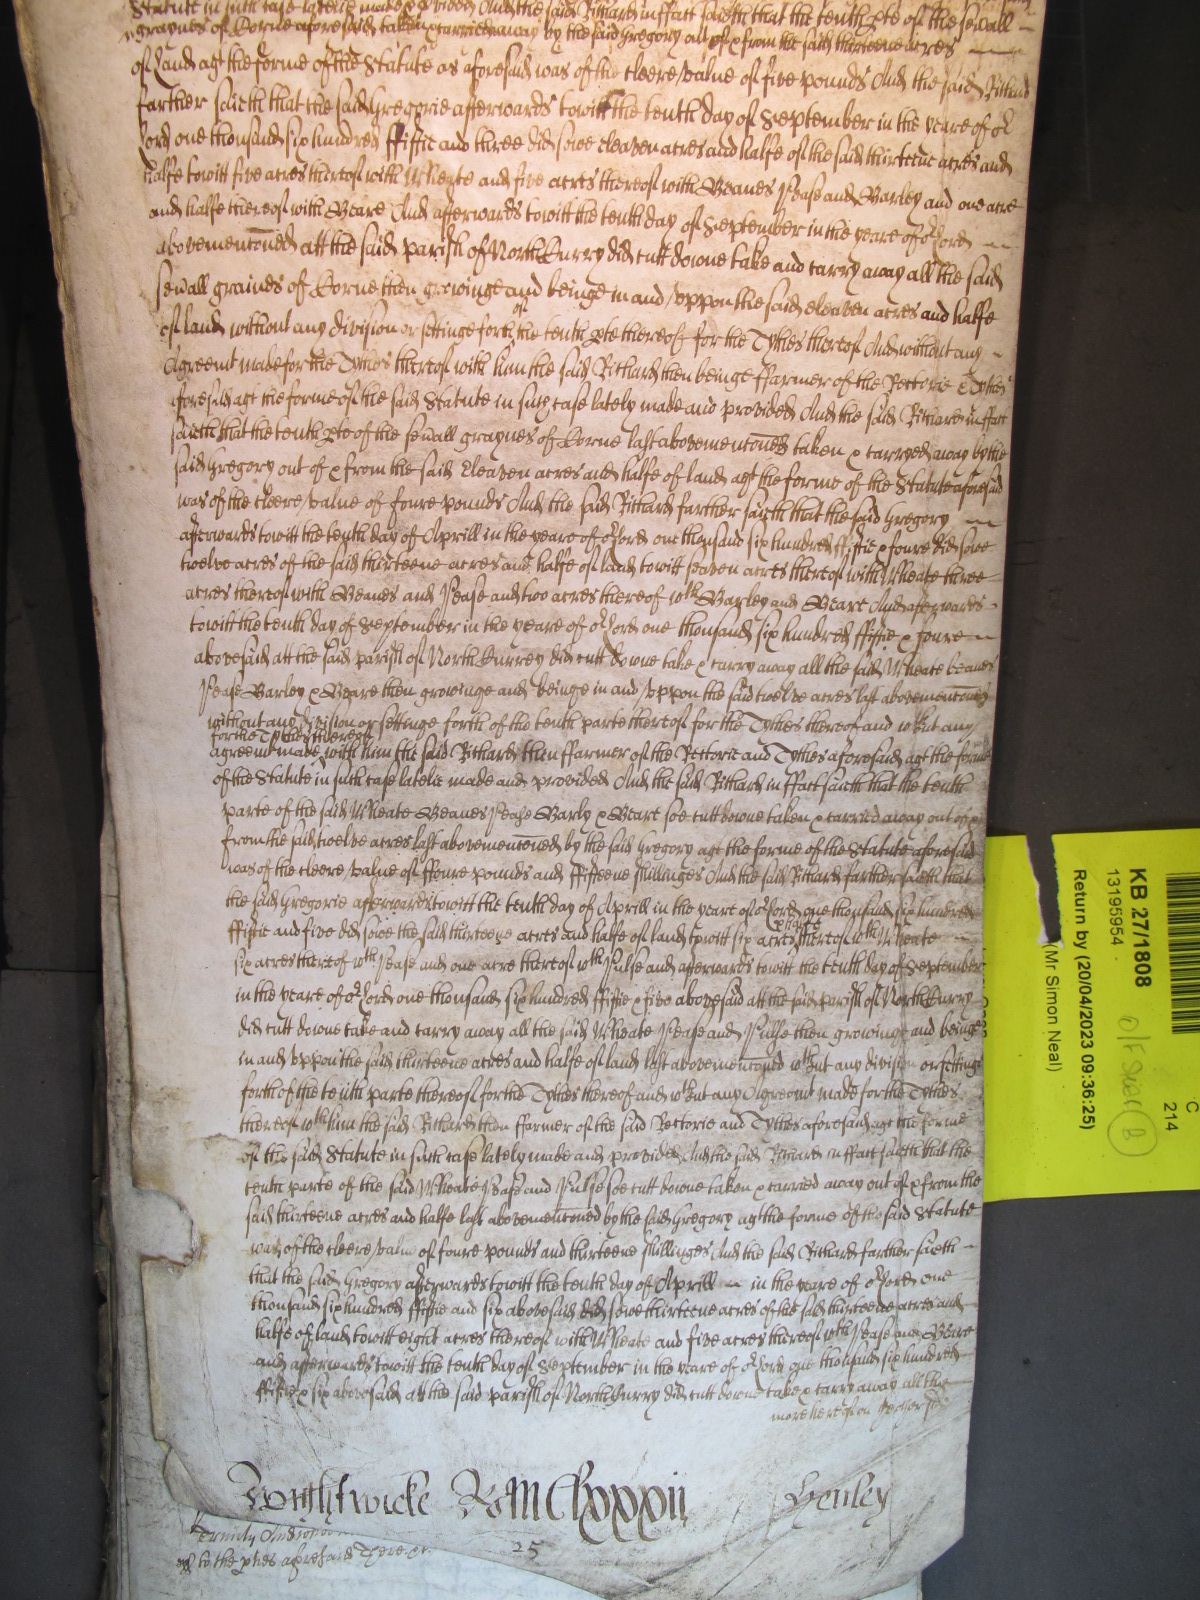 Statute in such case latelie made & p[ro]vided And the said Richard in ffact saieth that the tenth p[ar]te of the sev[er]all
graynes of Corne aforesaid taken & carried away by the said Gregory out of & from the said thirteene acres
of Land ag[ains]t the forme of the Statute as aforesaid was of the cleere value of five pounds And the said Richard
farther saieth that the said Gregorie afterwards towitt the tenth day of September in the yeare of o[u]r
Lord one thousand six hundred ffiftie and three did sowe eleaven acres and halfe of the said thirteene acres and
halfe towitt five acres thereof with Wheate and five acres thereof with Beanes Pease and Barley and one acre
and halfe thereof with Beare And afterwards towitt the tenth day of September in the yeare of o[u]r Lord
abovemenc[i]oned att the said parish of North Curry did cutt downe take and carry away all the said
sev[er]all graines of Corne then growinge and beinge in and uppon the said eleaven acres and halfe
of land without any division or settinge forth of the tenth p[ar]te thereof for the Tythes thereof And without any
Agreem[en]t made for the Tythes thereof with him the said Richard then beinge ffarmer of the Rectorie & Tythes
aforesaid ag[ains]t the forme of the said Statute in such case lately made and provided And the said Richard in ffact
saieth that the tenth p[ar]te of the sev[er]all graynes of Corne last abovemenc[i]oned taken & carryed away by the
said Gregory out of & from the said Eleaven acres and halfe of land ag[ains]t the forme of the Statute aforesaid
was of the cleere value of foure pounds And the said Richard farther saieth that the said Gregory
afterwards towitt the tenth day of Aprill in the yeare of o[u]r Lord one thousand six hundred ffiftie & foure did sowe
twelve acres of the said thirteene acres and halfe of land towitt seaven acres thereof with Wheate three
acres thereof with Beanes and Pease and two acres thereof w[i]th Barley and Beare And afterwards
towitt the tenth day of September in the yeare of o[u]r Lord one thousand six hundred ffiftie & foure
abovesaid att the said parish of North Currey did cutt downe take & carry away all the said Wheate beanes
Pease Barley & Beare then growinge and beinge in and uppon the said twelve acres last abovemenc[i]oned
without any division or settinge forth of the tenth parte thereof for the Tythes thereof and w[i]thout any
for the Tythes thereof
agreem[en]t made with him the said Richard then ffarmer of the Rectorie and Tythes aforesaid ag[ains]t the forme
of the Statute in such case latelie made and provided And the said Richard in ffact saieth that the tenth
parte of the said Wheate Beanes Pease Barly & Beare soe cutt downe taken & carried away out of &
from the said twelve acres last abovemenc[i]oned by the said Gregory ag[ains]t the forme of the Statute aforesaid
was of the cleere value of ffoure pounds and ffifteene shillinges And the said Richard farther saieth that
the said Gregorie afterwards towitt the tenth day of Aprill in the yeare of o[u]r Lord one thousand six hundred
ffiftie and five did sowe the said thirteene acres and halfe of land towitt six acres & halfe thereof w[i]th Wheate
six acres thereof w[i]th Pease and one acre thereof w[i]th Pulse and afterwards towitt the tenth day of September
in the yeare of o[u]r Lord one thousand six hundred ffiftie & five abovesaid att the said parish of North Curry
did cutt downe take and carry away all the said Wheate Pease and Pulse then growinge and beinge
in and uppon the said thirteene acres and halfe of land last abovemenc[i]oned w[i]thout any division or settinge
forth of the tenth parte thereof for the Tythes thereof and w[i]thout any Agreem[en]t made for the Tythes
thereof w[i]th him the said Richard then ffarmer of the said Rectorie and Tythes aforesaid ag[ains]t the forme
of the said Statute in such case lately made and provided And the said Richard in ffact saieth that the
tenth parte of the said Wheate Pease and Pulse soe cutt downe taken & carried away out of & from the
said thirteene acres and halfe last abovemenc[i]oned by the said Gregory ag[ains]t the forme of the said Statute
was of the cleere value of foure pounds and thirteene shillinges And the said Richard farther saieth
that the said Gregory afterwards towitt the tenth day of Aprill in the yeare of o[u]r Lord one
thousand six hundred ffiftie and six abovesaid did sowe thirteene acres of the said thirteene acres and
halfe of land towitt eight acres thereof with Wheate and five acres thereof w[i]th Pease and Beare
and afterwards towitt the tenth day of September in the yeare of o[u]r Lord one thousand six hundred
ffiftie & six abovesaid att the said parish of North Curry did cutt downe take & carry away all the
more hereof on th'other side
Ro MClxxxii Henley
25
to the p[ar]ties aforesaid
KB 27/1808
13195954
Return by (20/04/2023 09:36:25)
(Mr Simon Neal)
C
214
B